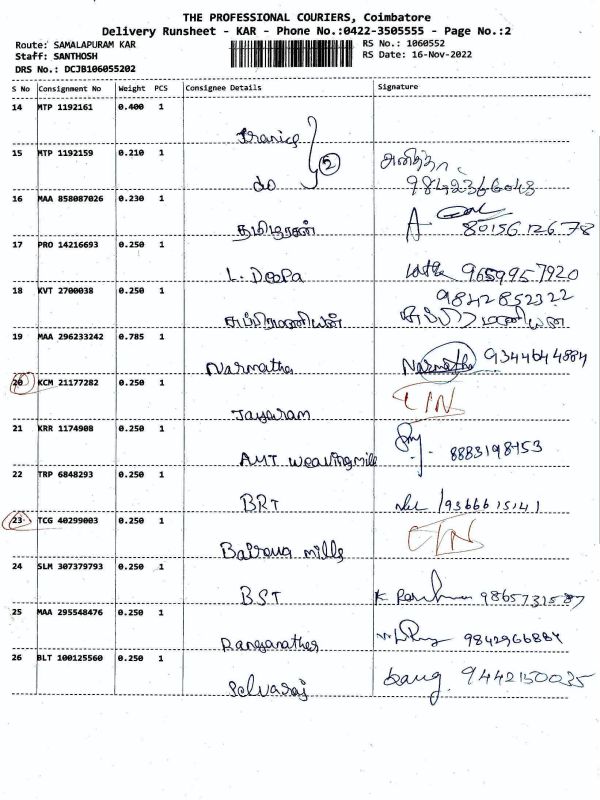 THE PROFESSIONAL COURIERS, Coimbatore
Delivery Runsheet - KAR - Phone No.:0422-3505555 - Page No.:2
Route: SAMALAPURAM KAR
RS No.: 1060552
Staff: SANTHOSH
RS Date: 16-Nov-2022
DRS No.: DCJB106055202
S No Consignment No Weight PCS Consignee Details Signature
14 MTP 1192161 0.400 1
15 MTP 1192159 0.210 1 do 2 அனிதா 9842366043
16 MAA 858087026 0.230 1 தமிழரசன் 8015612678
17 PRO 14216693 0.250 1 L. Deepa 9659957920
18 KVT 2700038 0.250 1 சுப்பிரமணியன் 9842852322 சுப்பிரமணியன்
19 MAA 296233242 0.785 1 Narmatha Narmatha 9344644884
20 KCM 21177282 0.250 1 Jayaram
21 KRR 1174908 0.250 1 AMT weaving mill 8883198453
22 TRP 6848293 0.250 1 BRT 9366615141
23 TCG 40299003 0.250 1 Bairava mills
24 SLM 307379793 0.250 1 BST 9865731587
25 MAA 295548476 0.250 1 Ranganathan 9842966884
26 BLT 100125560 0.250 1 Selvaraj 9442150035